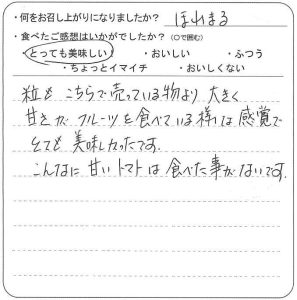 ・何をお召し上がりになりましたか? ほれまる
・食べたご感想はいかがでしたか? (〇で囲む)
・とっても美味しい! ・おいしい ・ふつう
・ちょっとイマイチ ・おいしくない
粒も こちらで売っている物より 大きく
甘さが フルーツを食べている様な感覚で
とても 美味しかったです。
こんなに 甘いトマトは 食べた事がないです。